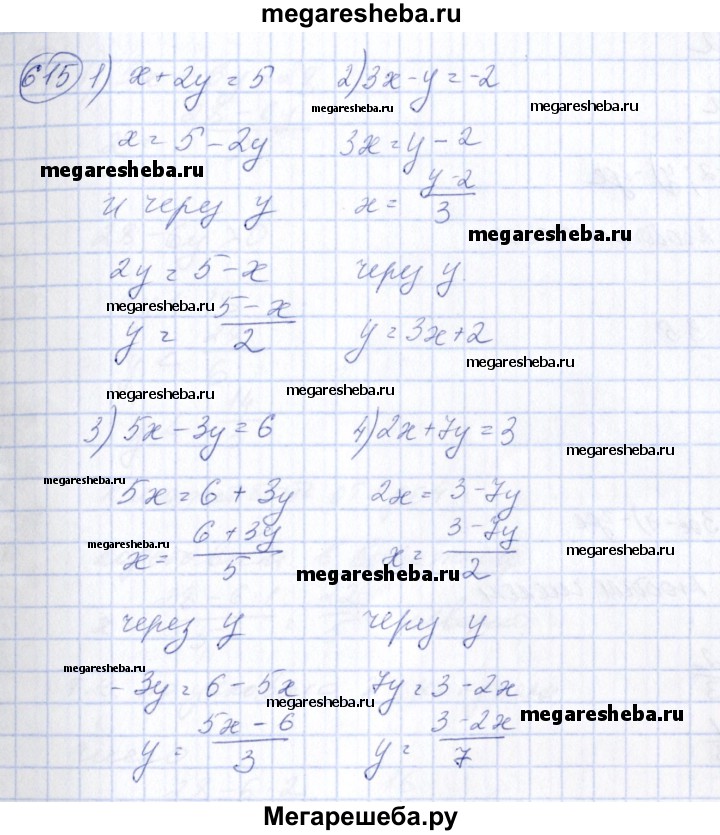 megaresheba.ru
615 1) x + 2y = 5 2) 3x - y = -2
megaresheba.ru megaresheba.ru
x = 5 - 2y 3x = y - 2
megaresheba.ru
и через y x = (y-2)/3
megaresheba.ru
2y = 5 - x через y.
megaresheba.ru
y = (5 - x)/2 y = 3x + 2
megaresheba.ru
megaresheba.ru megaresheba.ru
3) 5x - 3y = 6 4) 2x + 7y = 3
megaresheba.ru
megaresheba.ru
5x = 6 + 3y 2x = 3 - 7y
megaresheba.ru
x = (6 + 3y)/5 x = (3 - 7y)/2
megaresheba.ru
megaresheba.ru
через y через y
megaresheba.ru
- 3y = 6 - 5x 7y = 3 - 2x
megaresheba.ru megaresheba.ru
y = (5x - 6)/3 y = (3 - 2x)/7
Мегарешеба.ру